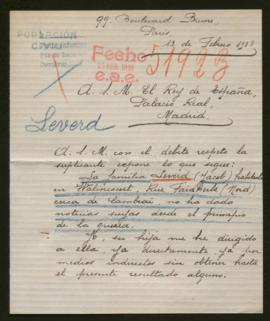 99. Boulevard Brune.
Paris.
13 de Febrero 1918
POBLACIÓN
CIVIL
Fecho
e.a.e.
51923
A. S. M. El Rey de España,
Palacio Real,
Madrid.
Leverd
A. S. M. con el debido respeto la
suplicante expone lo que sigue:
La familia Leverd (Jacob) habitante
en Walincourt, Rue Faidherbe (Nord)
cerca de Cambrai, no ha dado
noticias suyas desde el principio
de la guerra.
Yo, su hija me he dirigido
a ella ya directamente ya por
medios indirectos sin obtener hasta
el presente resultado alguno.